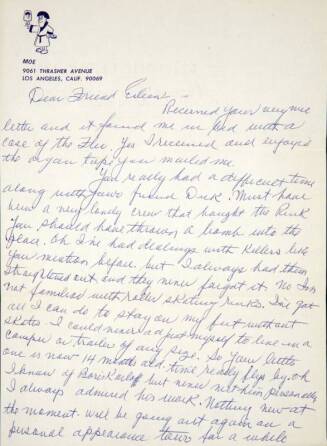 MOE
9061 THRASHER AVENUE
LOS ANGELES, CALIF. 90069
Dear Friend Eileen: -
Received your very nice
letter and it found me in bed with a
case of the Flu. Yes I received and enjoyed
the organ tape you mailed me.
You really had a difficult time
along with your friend Dick. Must have
been a new lonely crew that bought the Rink
You should have thrown a bomb into the
place. Oh I've had dealings with Killers like
you mention before. but I always had them
straightened out and they never forgot it. No Im
not familiar with roller skating rinks. I've got
all I can do to stay on my feet without
skates. I could never adjust myself to live in a
camper or trailer of any size. So your little
one is now 14 months old. time really flys by. oh
I know of Boris Karloff but never met him personally
I always admired his work. Nothing new at
the moment. will be going out again on a
personal appearance tour for while